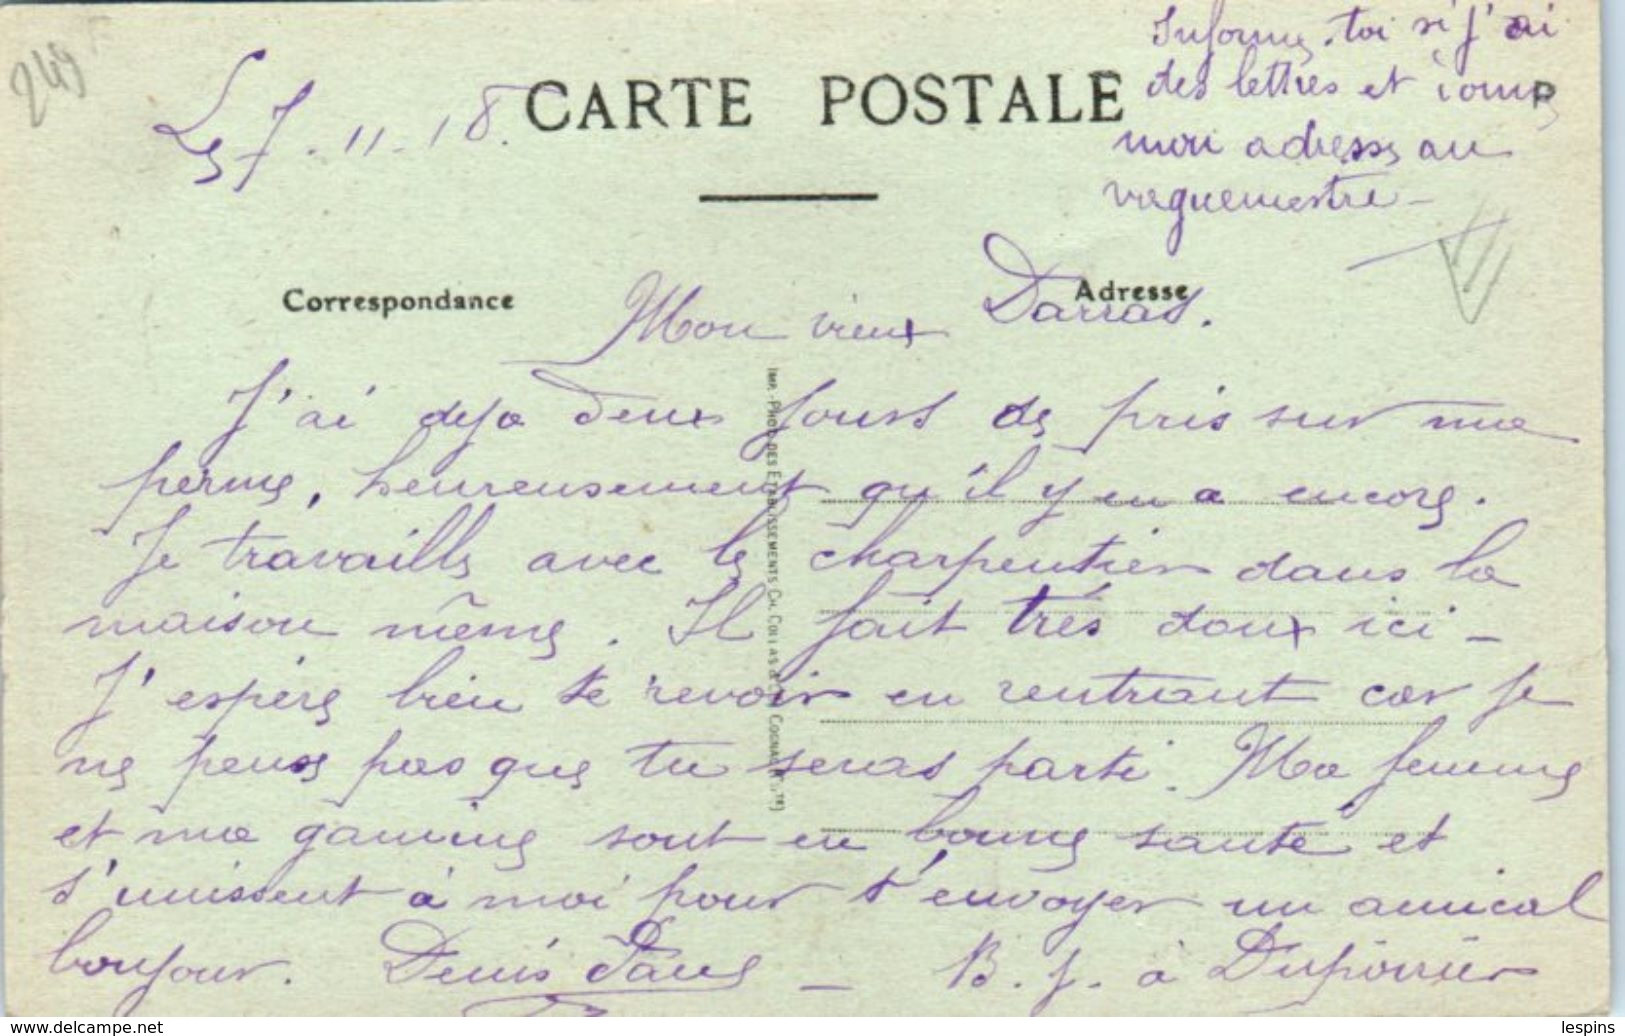 249
Le 7-11-18.
CARTE POSTALE
Informe-toi si j'ai
des lettres et
mon adresse au
vaguemestre -
P
Correspondance
Adresse
Mon vieux Darras.
J'ai deja deux jours de pris sur ma
perme, heureusement qu'il y en a encore.
Je travaille avec le charpentier dans la
maison même. Il fait très doux ici -
J'espère bien te revoir en rentrant car je
ne pense pas que tu seras parti. Ma femme
et ma gamine sont en bonne santé et
s'unissent à moi pour t'envoyer un amical
bonjour. Denis - B. j. à
IMP.-PHOT. DES ETABLISSEMENTS CH. COLLAS & COGNAC
lespins